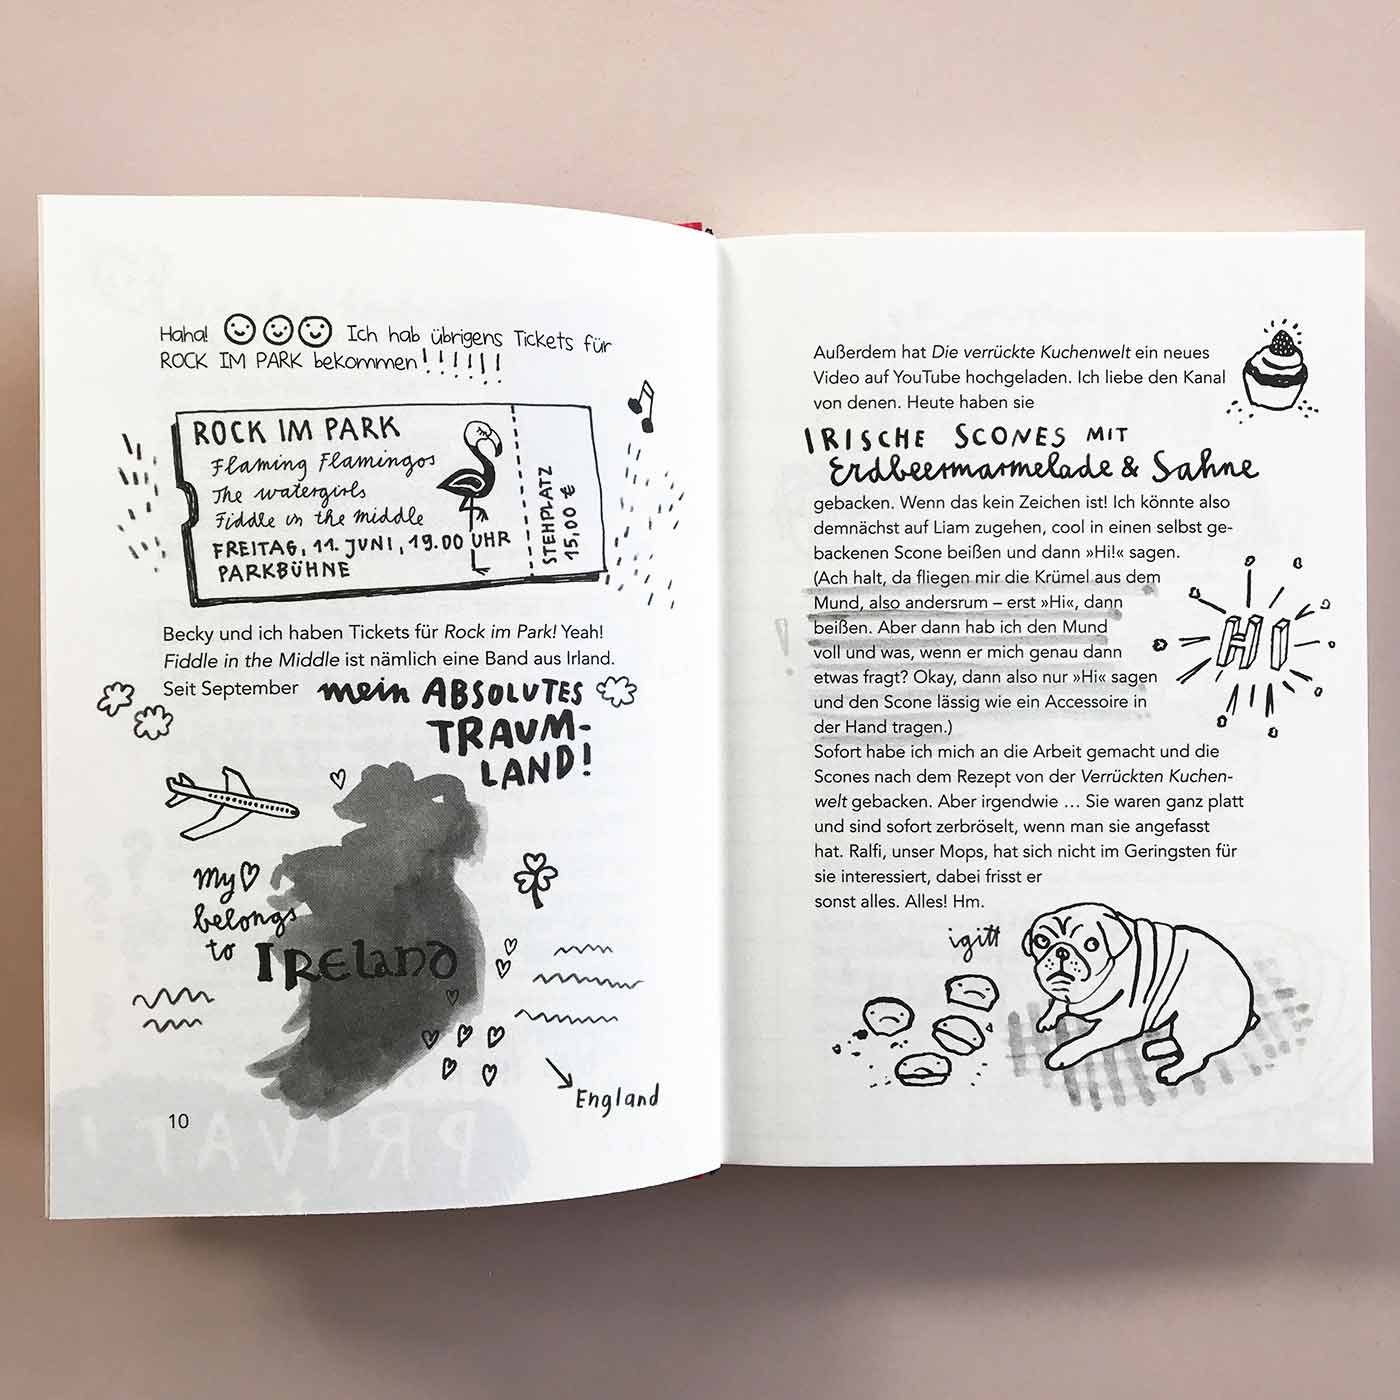 Haha! Ich hab übrigens Tickets für
ROCK IM PARK bekommen!!!!!!
ROCK IM PARK
Flaming Flamingos
The watergirls
Fiddle in the middle
FREITAG, 11. JUNI, 19.00 UHR
PARKBÜHNE
STEHPLATZ
15,00 €
Becky und ich haben Tickets für Rock im Park! Yeah!
Fiddle in the Middle ist nämlich eine Band aus Irland.
Seit September mein ABSOLUTES
TRAUM-
LAND!
My
belongs
to IRELAND
England
10
PRIVAT!
Außerdem hat Die verrückte Kuchenwelt ein neues
Video auf YouTube hochgeladen. Ich liebe den Kanal
von denen. Heute haben sie
IRISCHE SCONES MIT
Erdbeermarmelade & Sahne
gebacken. Wenn das kein Zeichen ist! Ich könnte also
demnächst auf Liam zugehen, cool in einen selbst ge-
backenen Scone beißen und dann »Hi!« sagen.
(Ach halt, da fliegen mir die Krümel aus dem
Mund, also andersrum – erst »Hi«, dann
beißen. Aber dann hab ich den Mund
voll und was, wenn er mich genau dann
etwas fragt? Okay, dann also nur »Hi« sagen
und den Scone lässig wie ein Accessoire in
der Hand tragen.)
HI
Sofort habe ich mich an die Arbeit gemacht und die
Scones nach dem Rezept von der Verrückten Kuchen-
welt gebacken. Aber irgendwie … Sie waren ganz platt
und sind sofort zerbröselt, wenn man sie angefasst
hat. Ralfi, unser Mops, hat sich nicht im Geringsten für
sie interessiert, dabei frisst er
sonst alles. Alles! Hm.
igitt